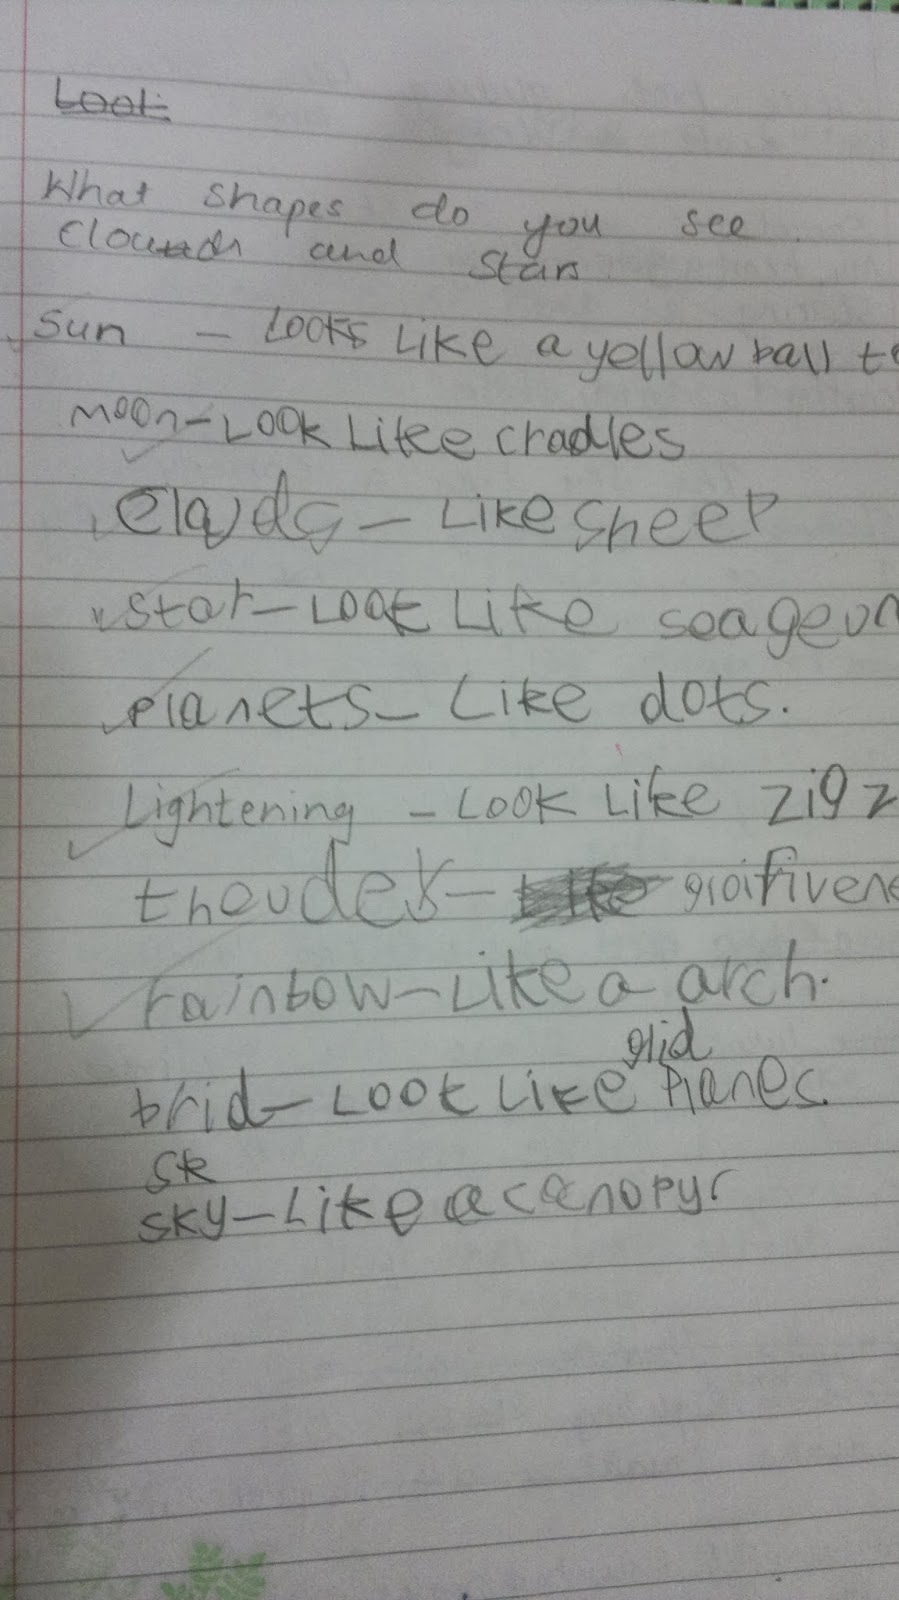 Look
What shapes do you see
Clouds and stars
Sun - Looks Like a yellow ball
Moon-Look Like cradles
Clouds - Like sheep
star-Look Like
planets- Like dots.
Lightening - Look Like
theuder-
rainbow-Like a arch.
glid
brid-Look Like Planes.
sk
sky-Like a canopy